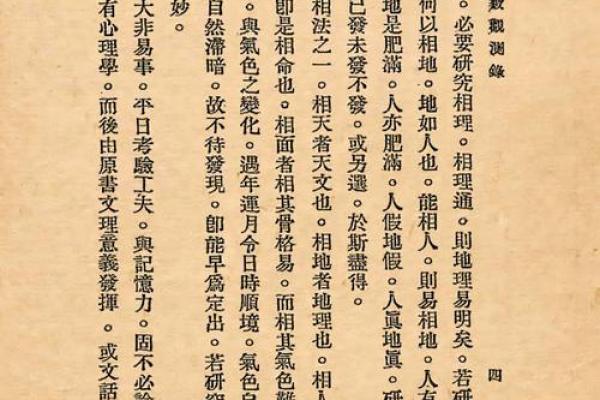 觀測錄 四
。必要研究相理。相理通。則地理易明矣。若研
何以相地。地如人也。能相人。則易相地。人有
地是肥滿。人亦肥滿。人假地假。人眞地眞。研
已發未發不發。或另選。於斯盡得。
相法之一。相天者天文也。相地者地理也。相人
卽是相命也。相面者相其骨格易。而相其氣色難
。與氣色之變化。遇年運月令日時順境。氣色自
自然滯暗。故不待發現。卽能早爲定出。若研究
妙。
大非易事。平日考驗工夫。與記憶力。固不必論
有心理學。而後由原書文理意義發揮。或文話